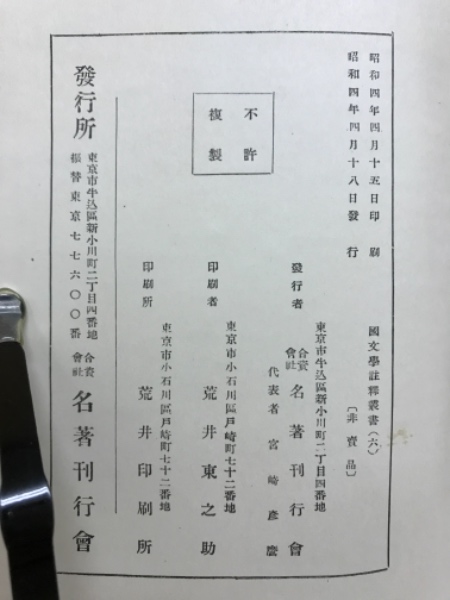 昭和四年四月十五日印刷
昭和四年四月十八日發行
國文學註釋叢書(六)
〔非賣品〕
不許
複製
東京市牛込區新小川町二丁目四番地
發行者 合資會社 名著刊行會
代表者 宮崎彥麿
東京市小石川區戸崎町七十二番地
印刷者 荒井東之助
東京市小石川區戸崎町七十二番地
印刷所 荒井印刷所
發行所
東京市牛込區新小川町二丁目四番地
振替東京七七六〇〇番
合資會社 名著刊行會